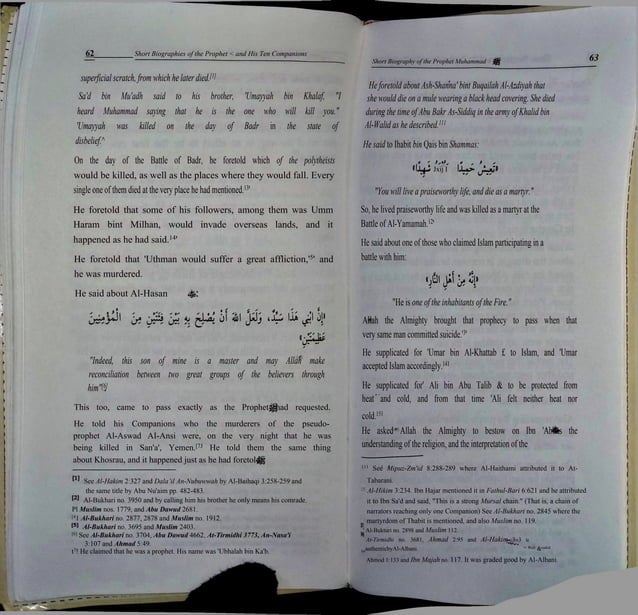 62 Short Biographies of the Prophet < and His Ten Companions
superficial scratch, from which he later died.[1]
Sa'd bin Mu'adh said to his brother, 'Umayyah bin Khalaf, "I
heard Muhammad saying that he is the one who will kill you."
'Umayyah was killed on the day of Badr in the state of
disbelief.^
On the day of the Battle of Badr, he foretold which of the polytheists
would be killed, as well as the places where they would fall. Every
single one of them died at the very place he had mentioned.[3]
He foretold that some of his followers, among them was Umm
Haram bint Milhan, would invade overseas lands, and it
happened as he had said.[4]
He foretold that 'Uthman would suffer a great affliction,[5] and
he was murdered.
He said about Al-Hasan ﷺ:
«إِنَّ ابْنِي هَذَا سَيِّدٌ، وَلَعَلَّ اللهَ أَنْ يُصْلِحَ بِهِ بَيْنَ فِئَتَيْنِ مِنَ الْمُؤْمِنِينَ
عَظِيمَتَيْنِ»
"Indeed, this son of mine is a master and may Allah make
reconciliation between two great groups of the believers through
him"[6]
This too, came to pass exactly as the Prophet ﷺ had requested.
He told his Companions who the murderers of the pseudo-
prophet Al-Aswad Al-Ansi were, on the very night that he was
being killed in San'a', Yemen.[7] He told them the same thing
about Khosrau, and it happened just as he had foretold.
[1] See Al-Hakim 2:327 and Dala'il An-Nubuwwah by Al-Baihaqi 3:258-259 and
the same title by Abu Nu'aim pp. 482-483.
[2] Al-Bukhari no. 3950 and by calling him his brother he only means his comrade.
Pl Muslim nos. 1779, and Abu Dawud 2681.
[4] Al-Bukhari no. 2877, 2878 and Muslim no. 1912.
[5] Al-Bukhari no. 3695 and Muslim 2403.
[6] See Al-Bukhari no. 3704, Abu Dawud 4662, At-Tirmidhi 3773, An-Nasa'i
3:107 and Ahmad 5:49.
[7] He claimed that he was a prophet. His name was 'Ubhalah bin Ka'b.
Short Biography of the Prophet Muhammad ﷺ 63
He foretold about Ash-Shamna' bint Buqailah Al-Azdiyah that
she would die on a mule wearing a black head covering. She died
during the time of Abu Bakr As-Siddiq in the army of Khalid bin
Al-Walid as he described.[1]
He said to Ihabit bin Qais bin Shammas:
«تَعِيشُ حَمِيدًا JxijI شَهِيدًا»
"You will live a praiseworthy life, and die as a martyr."
So, he lived praiseworthy life and was killed as a martyr at the
Battle of Al-Yamamah.[2]
He said about one of those who claimed Islam participating in a
battle with him:
«إِنَّهُ مِنْ أَهْلِ النَّارِ»
"He is one of the inhabitants of the Fire."
Allah the Almighty brought that prophecy to pass when that
very same man committed suicide.[3]
He supplicated for 'Umar bin Al-Khattab £ to Islam, and 'Umar
accepted Islam accordingly.[4]
He supplicated for' Ali bin Abu Talib & to be protected from
heat and cold, and from that time 'Ali felt neither heat nor
cold.[5]
He asked Allah the Almighty to bestow on Ibn 'Abbas the
understanding of the religion, and the interpretation of the
[1] See Majma-Zaw'id 8:288-289 where Al-Haithami attributed it to At-
Tabarani.
Al-Hakim 3:234. Ibn Hajar mentioned it in Fathul-Bari 6:621 and he attributed
it to Ibn Sa'd and said, "This is a strong Mursal chain." (That is, a chain of
narrators reaching only one Companion) See Al-Bukhari no. 2845 where the
martyrdom of Thabit is mentioned, and also Muslim no. 119.
Al-Bukhari no. 2898 and Muslim 112.
At-Tirmidhi no. 3681, Ahmad 2:95 and Al-Hakim
authentic by Al-Albani.
Ahmed 1:133 and Ibn Majah no. 117. It was graded good by Al-Albani.